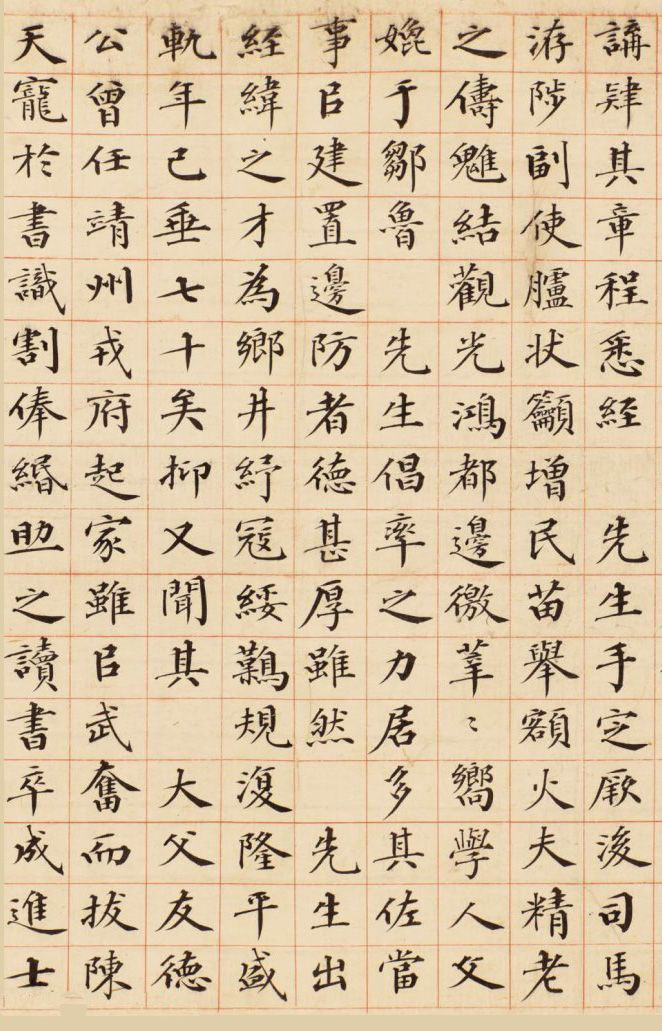 講肄其章程悉經 先生手定厥後司馬
洊陟副使臚状籲增民苗舉額火夫精老
之儔魋結觀光鴻都邊徼莘〻嚮學人父
媲于鄒魯 先生倡率之力居多其佐當
事㠯建置邊防者德甚厚雖然 先生出
經緯之才為鄉井紓寇綏鷄規復隆平盛
軌年已垂七十矣抑又聞其 大父友德
公曾任靖州戎府起家雖㠯武奮而拔陳
天寵於書識割俸緡助之讀書卒成進士